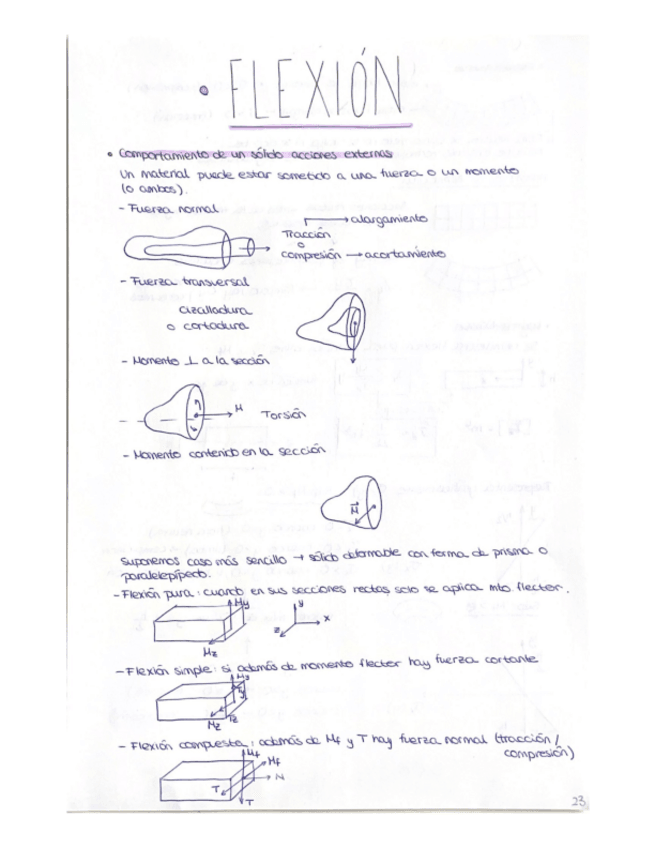 • FLEXIÓN
• Comportamiento de un sólido acciones externas
Un material puede estar sometido a una fuerza o un momento
(o ambos).
- Fuerza normal
Tracción → alargamiento
o
compresión → acortamiento
- Fuerza transversal
cizalladura
o cortadura
- Momento ⊥ a la sección
M
Torsión
- Momento contenido en la sección
M
Suponemos caso más sencillo → sólido deformable con forma de prisma o
paralelepípedo.
- Flexión pura: cuando en sus secciones rectas solo se aplica mto. flector.
My
y
x
z
Mz
- Flexión simple: si además de momento flector hay fuerza cortante
My
Ty
Mz Tz
- Flexión compuesta: además de Mf y T hay fuerza normal (tracción/
compresión)
Mf
Mf
N
T
T
23